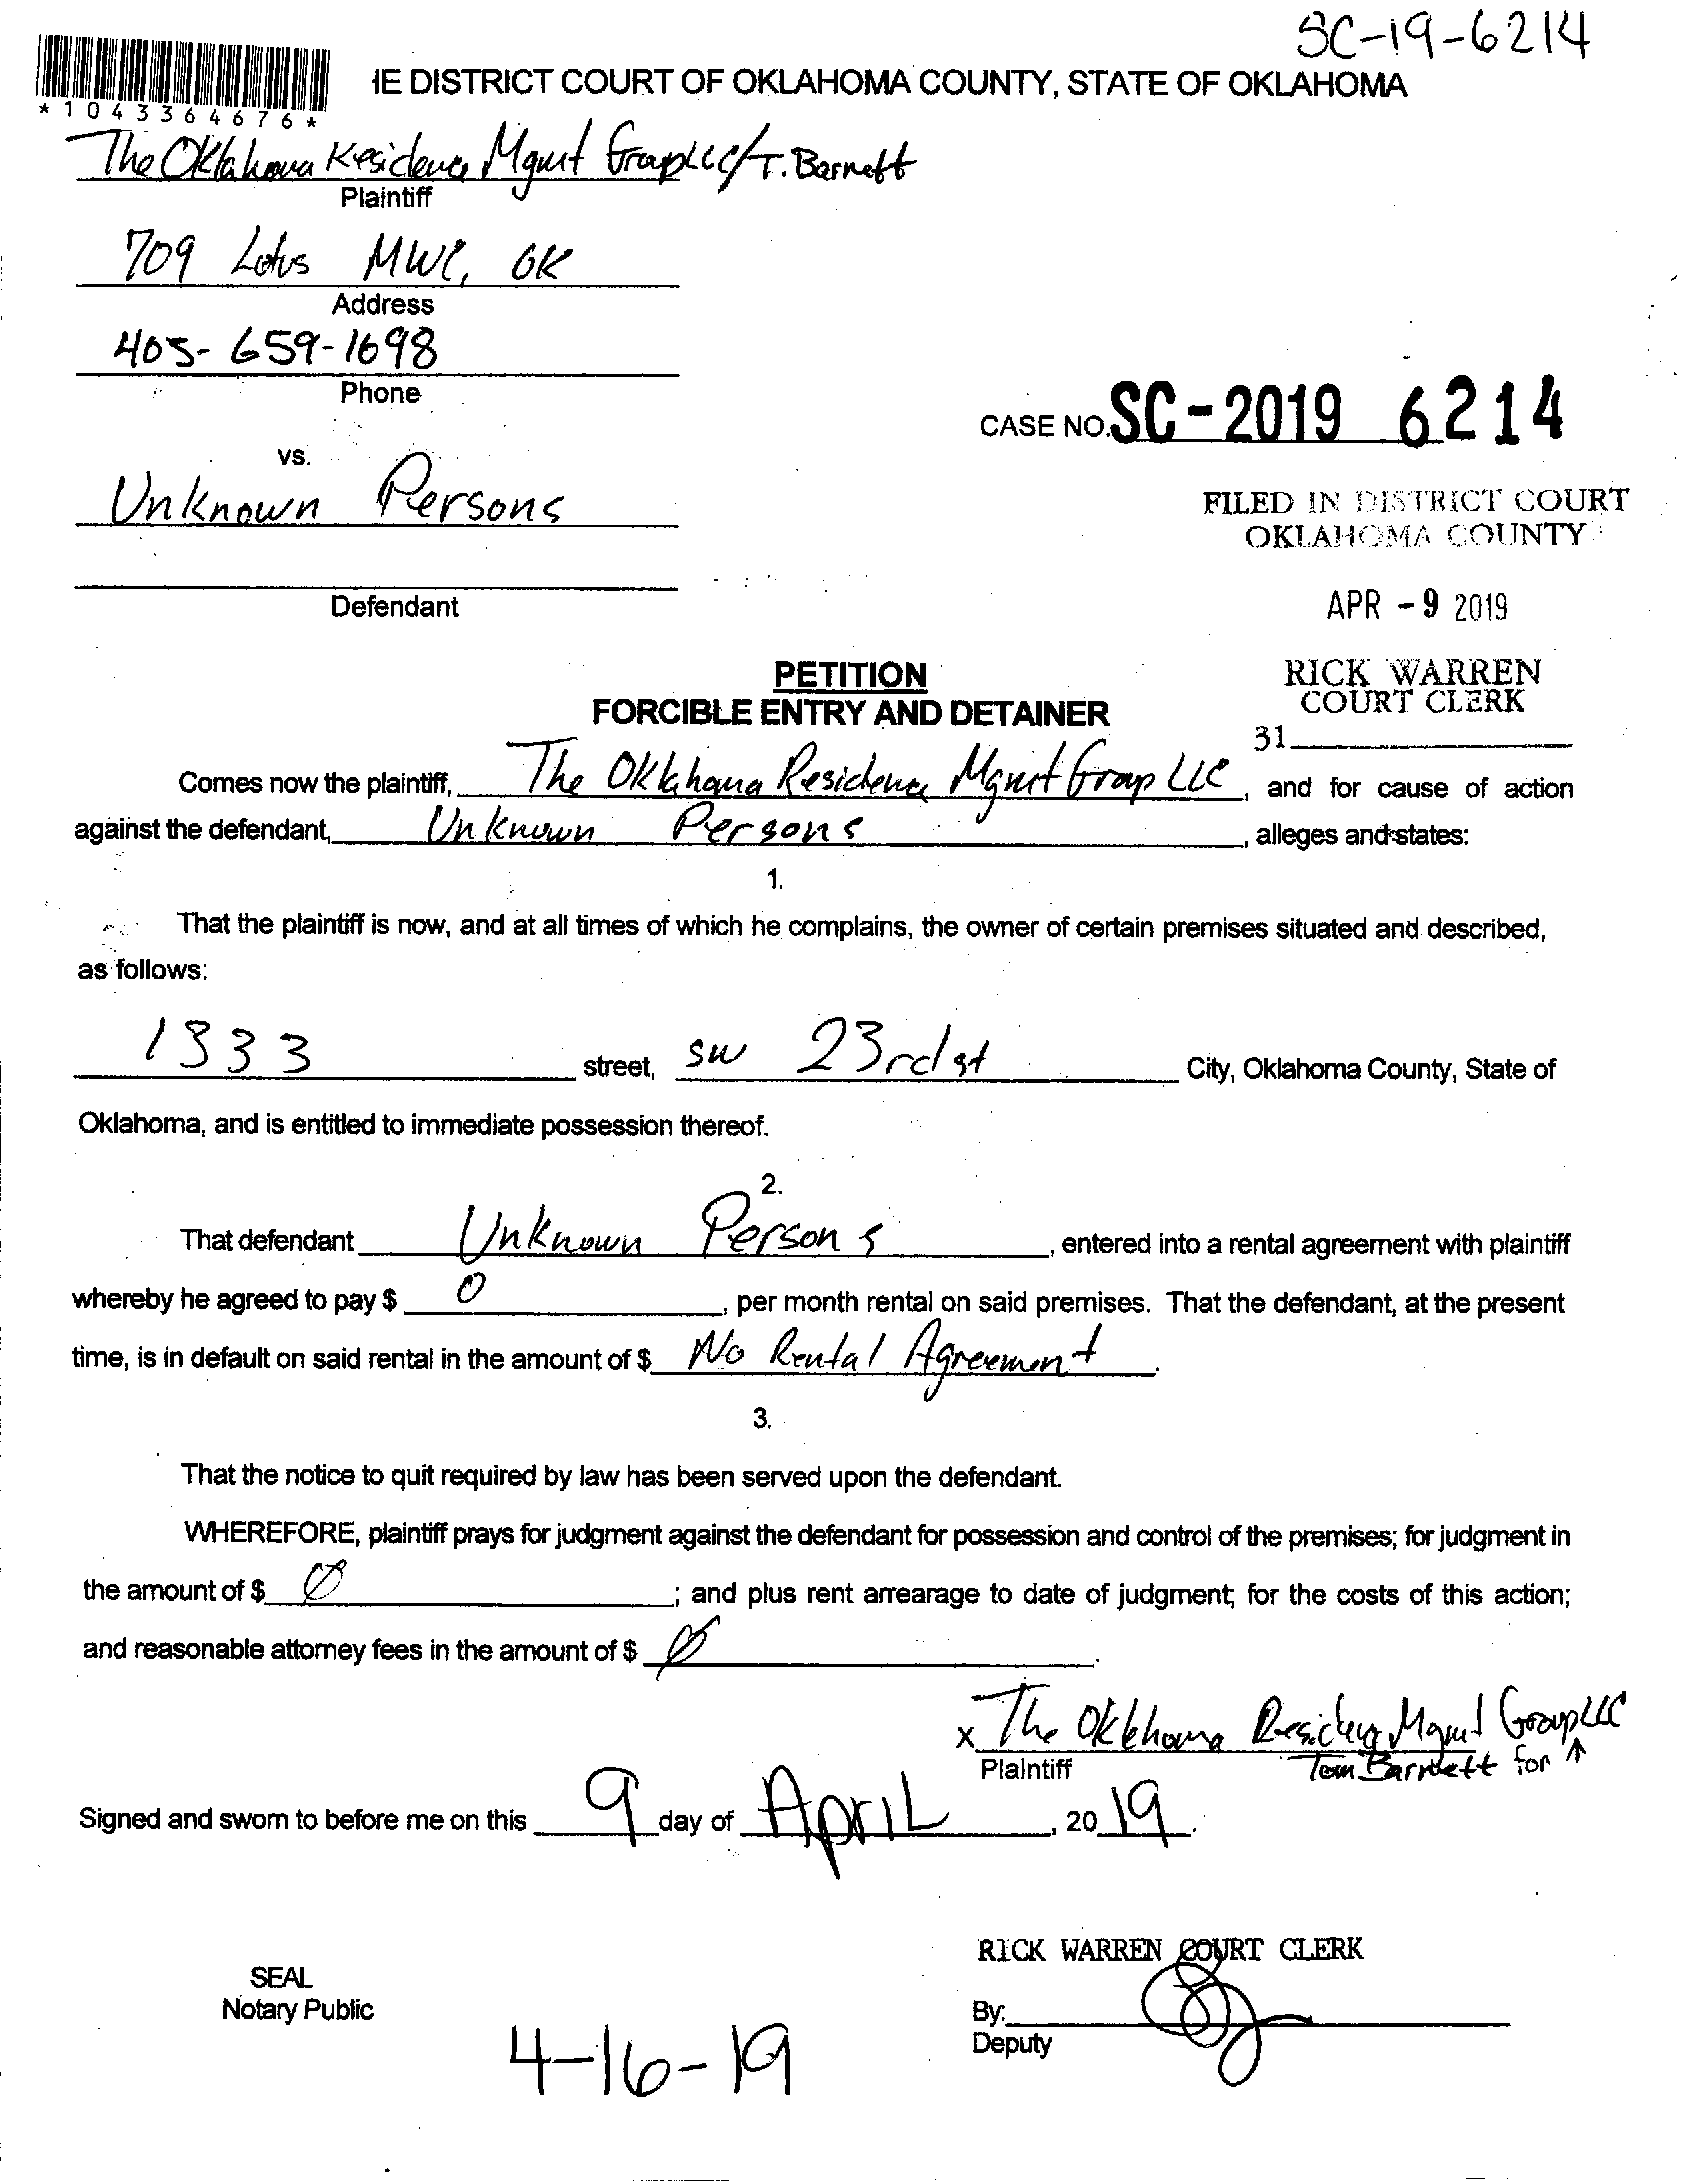 SC-19-6214
IE DISTRICT COURT OF OKLAHOMA COUNTY, STATE OF OKLAHOMA
*1043364676*
The Oklahoma Residence Mgmt Group LLC/T. Barnett
Plaintiff
709 Lotus MWC, OK
Address
405-659-1698
Phone
CASE NO. SC-2019 6214
vs.
Unknown Persons
FILED IN DISTRICT COURT
OKLAHOMA COUNTY
Defendant
APR -9 2019
PETITION
RICK WARREN
COURT CLERK
FORCIBLE ENTRY AND DETAINER
31
Comes now the plaintiff, The Oklahoma Residence Mgmt Group LLC, and for cause of action
against the defendant, Unknown Persons, alleges and states:
1.
That the plaintiff is now, and at all times of which he complains, the owner of certain premises situated and described,
as follows:
1333 street, SW 23rd st City, Oklahoma County, State of
Oklahoma, and is entitled to immediate possession thereof.
2.
That defendant Unknown Persons, entered into a rental agreement with plaintiff
whereby he agreed to pay $ 0, per month rental on said premises. That the defendant, at the present
time, is in default on said rental in the amount of $ No Rental Agreement.
3.
That the notice to quit required by law has been served upon the defendant.
WHEREFORE, plaintiff prays for judgment against the defendant for possession and control of the premises; for judgment in
the amount of $ Ø; and plus rent arrearage to date of judgment; for the costs of this action;
and reasonable attorney fees in the amount of $ Ø.
x The Oklahoma Residence Mgmt Group LLC
Plaintiff
Tom Barnett for ↑
Signed and sworn to before me on this 9 day of April, 2019.
RICK WARREN COURT CLERK
SEAL
Notary Public
By:
Deputy
4-16-19